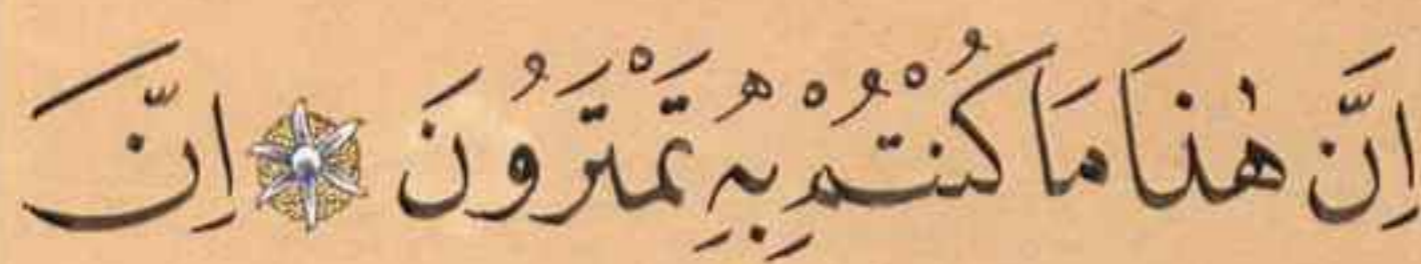 اِنَّ هٰذَا مَا كُنْتُمْ بِهِ تَمْتَرُونَ اِنَّ